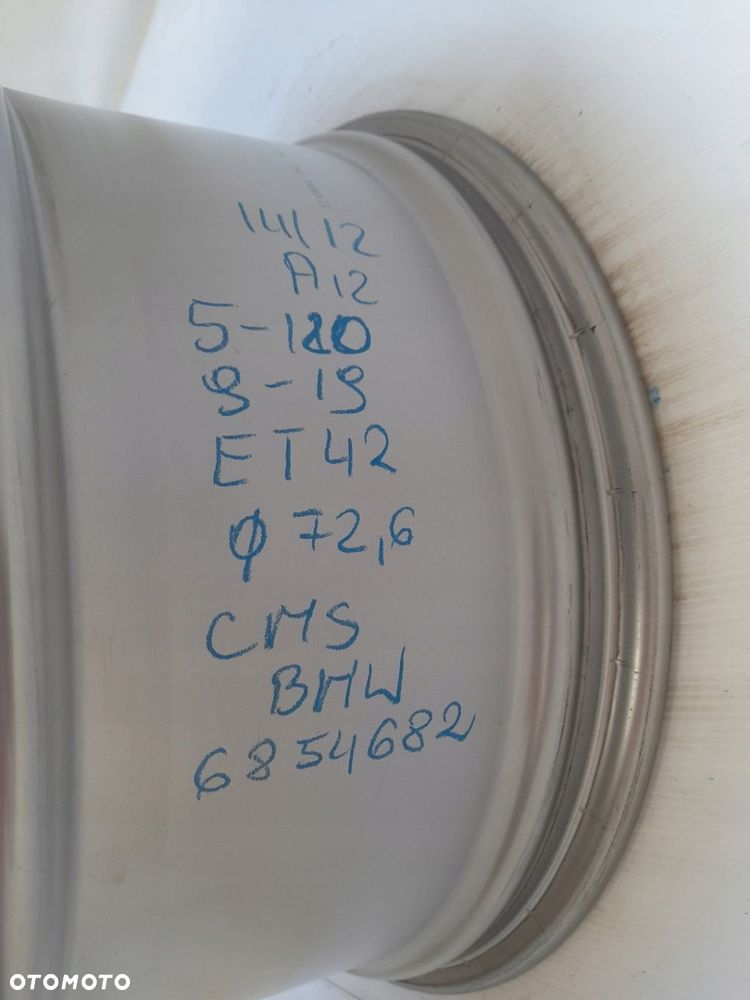 14/12
A12
5-120
9-19
ET42
φ 72,6
CMS
BMW
6854682
OTOMOTO